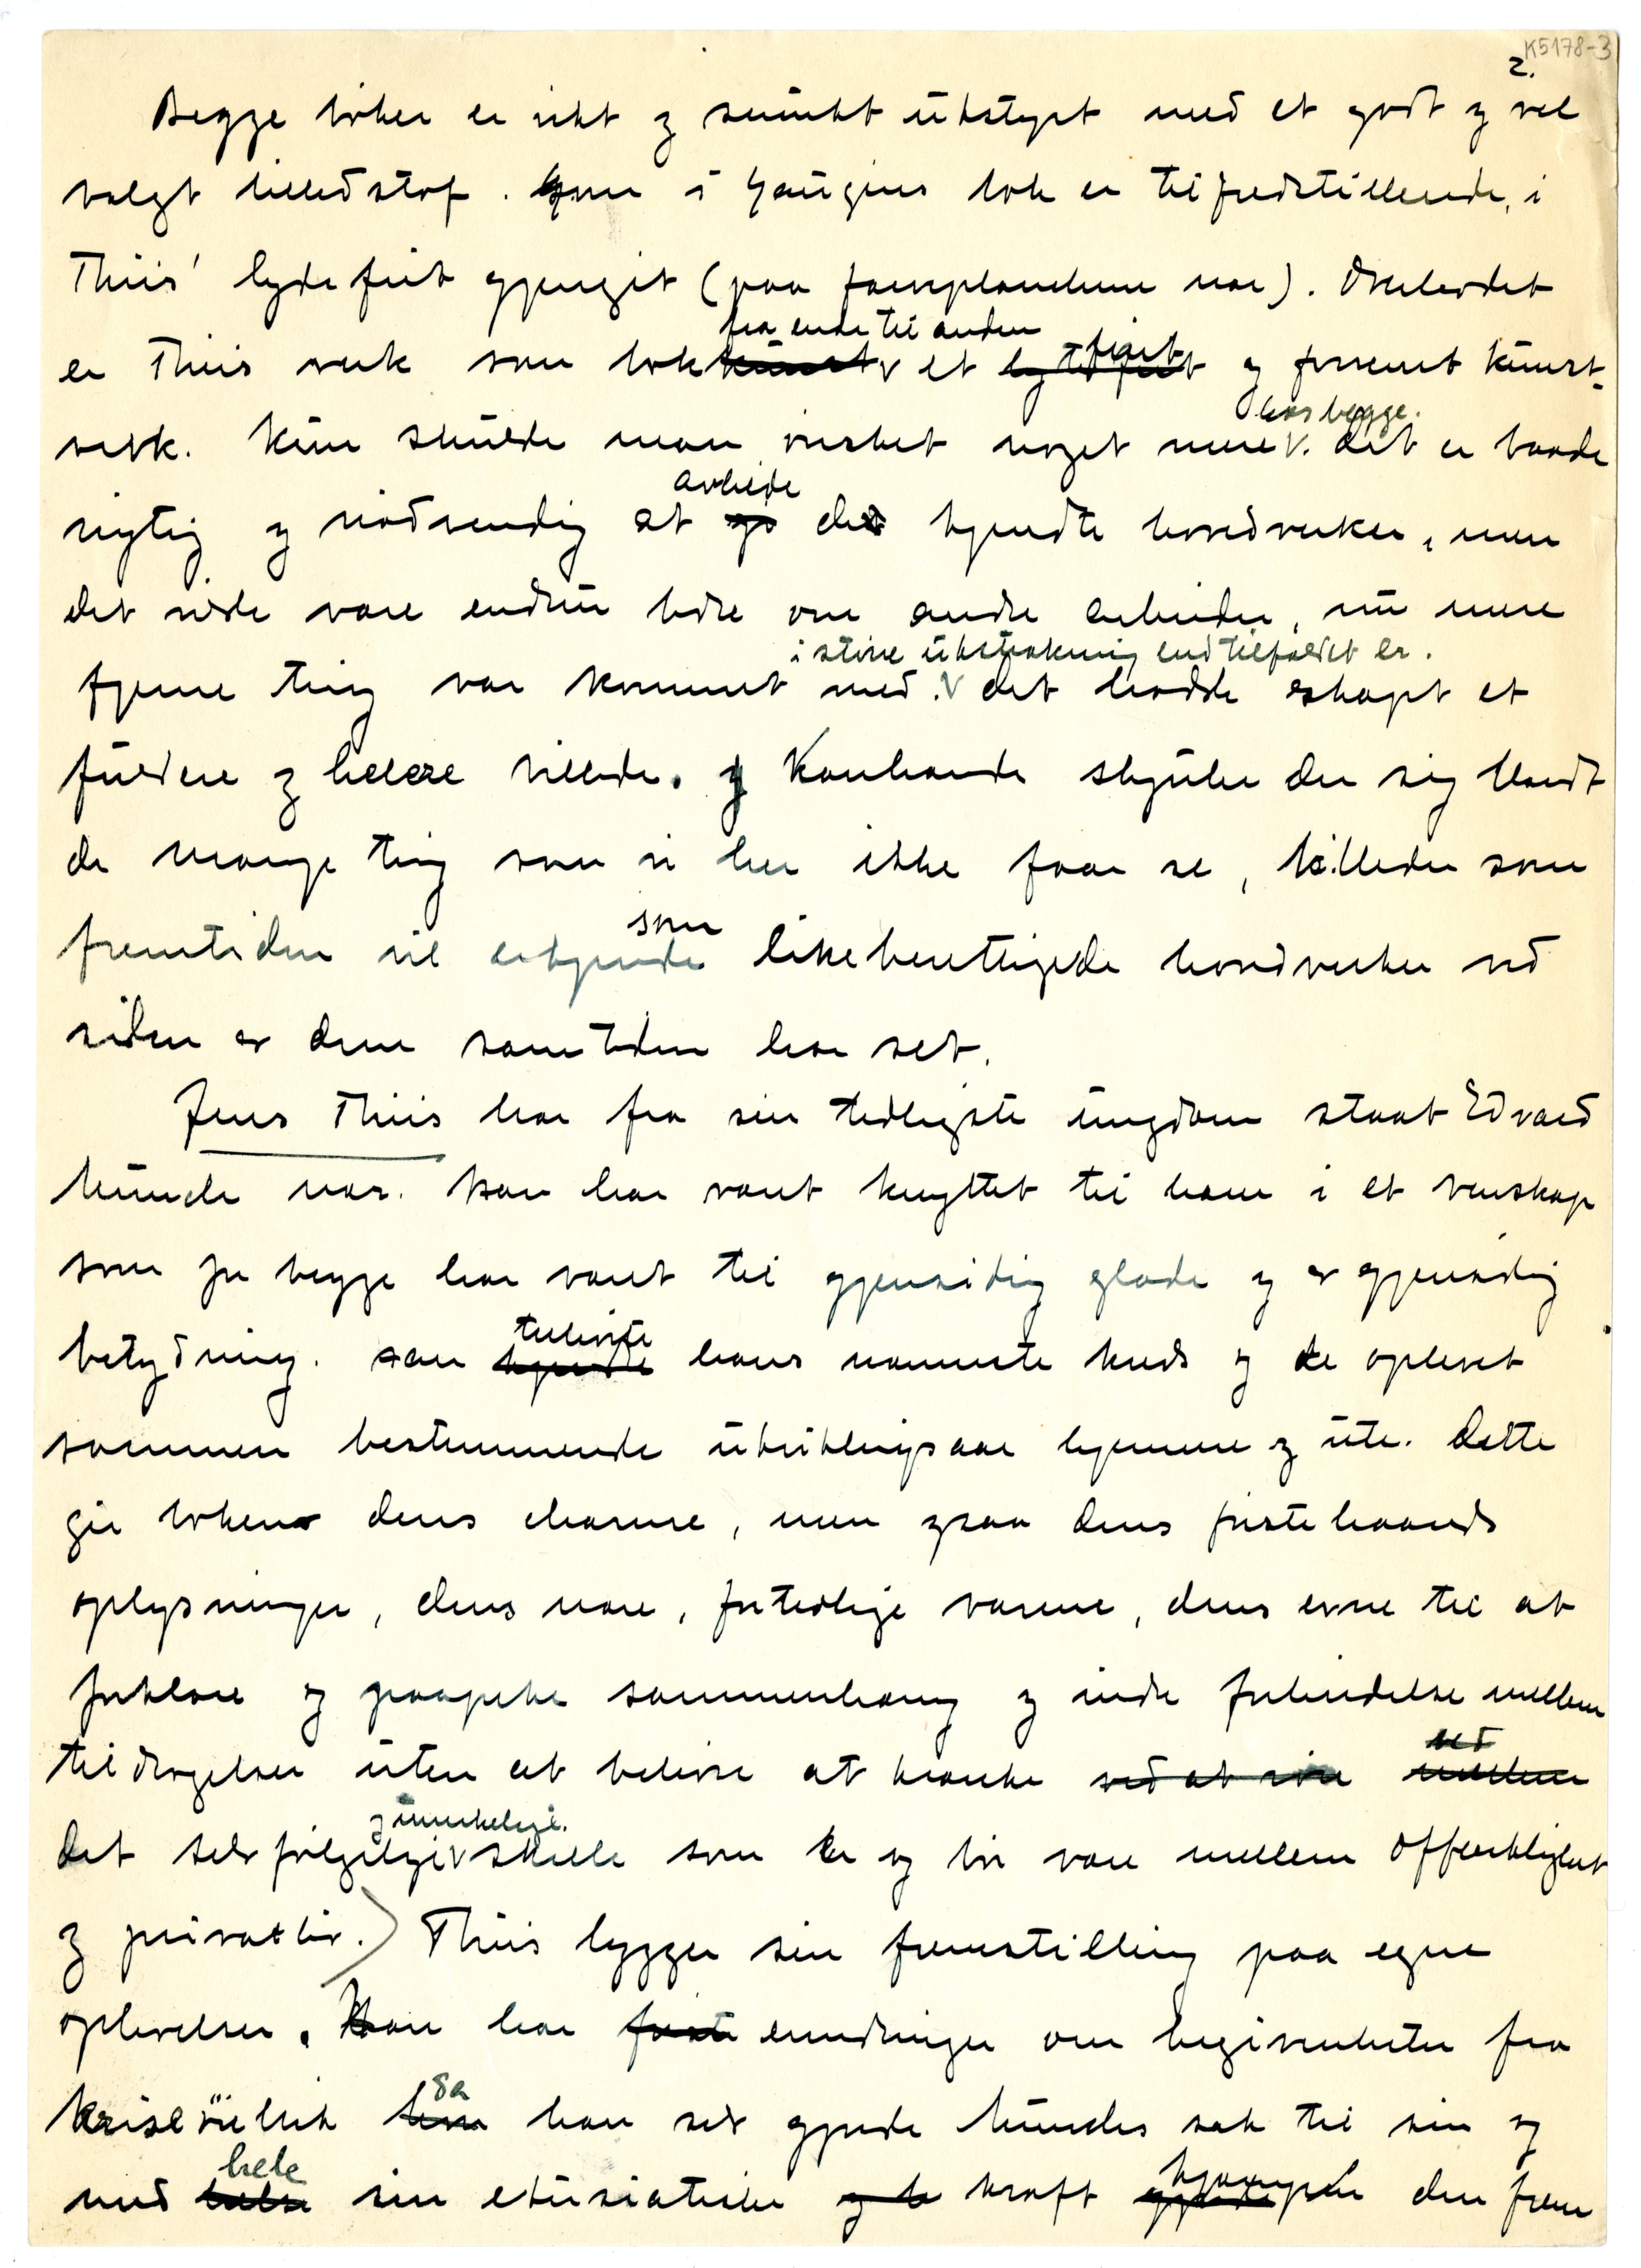 K5178-3
2.
Begge bøker er rikt og smukt utstyret med et godt og vel
valgt billedstof. Som i Gauguins bok er tilfredstillende, i
Thiis' lydefrit gjengit (paa farveplancherne nær). Overhodet
fra ende til anden
er Thiis verk som bok et fint og fornemt kunst-
hos begge.
verk. Kun skulde man ønsket noget mere. det er baade
avbilde
rigtig og nødvendig at de kjendte hovedverker, men
det vilde være endnu bedre om andre arbeider, nu mere
i større utstrækning end tilfældet er.
fjerne ting var kommet med. det hadde skapt et
fuldere og helere billede. Kanhænde skjuler der sig blandt
de mange ting som vi her ikke faar se, billeder som
som
fremtiden vil erkjende likeberettigede hovedverker ved
siden av dem samtiden har set.
Jens Thiis har fra sin tidligste ungdom staat Edvard
Munch nær. Han har været knyttet til ham i et venskap
som for begge har været til gjensidig glæde og av gjensidig
betydning. Han tilhørte hans nærmeste kreds og de oplevet
sammen bestemmende utviklingsaar hjemme og ute. Dette
gir boken dens charme, men ogsaa dens førstehaands
oplysninger, dens nære, fortrolige varme, dens evne til at
forklare og paapeke sammenhæng og indre forbindelse mellem
tildragelser uten at behøve at krænke ved at røre ved mellem
og ønskelige.
det selvfølgelige skille som er og bør være mellem offentlighet
og privatliv.) Thiis bygger sin fremstilling paa egne
oplevelser. Han har erindringer om begivenheter fra
kriseøieblik da han selv gjorde Munchs sak til sin og
med hele sin entusiatiske kraft kjæmpet den frem